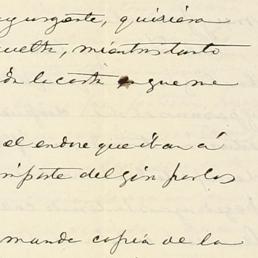 urgente, quisiera
mientras tanto
la carta que me
el endore que iban á
importe del giro por los
mande copia de la